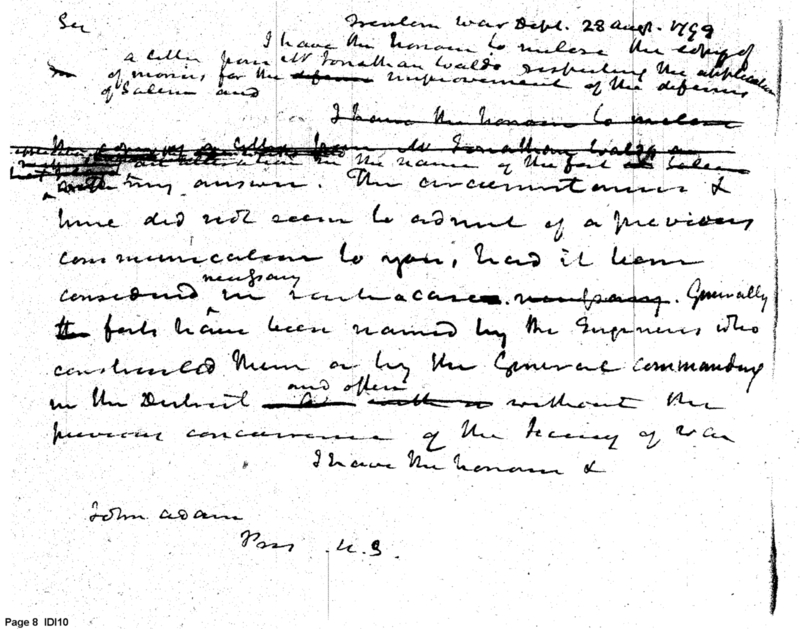 Trenton War Dept. 28 Augt. 1799
Sir
I have the honour to inclose the copy of
a letter from Mr Jonathan Waldo respecting the application
of monies for the defence improvement of the defences
of Salem and
I have the honour to inclose
copy of a letter from Mr Jonathan Waldo
alteration in the name of the fort at Salem
my answer. The circumstances &
time did not seem to admit of a previous
communication to you, had it been
necessary
considered in such a case necessary. Generally
the forts have been named by the Engineers who
constructed them or by the General commanding
and often
in the District without the
previous concurrence of the Secrey of War
I have the honour &
John Adams
Pres. U.S.
Page 8 IDI10